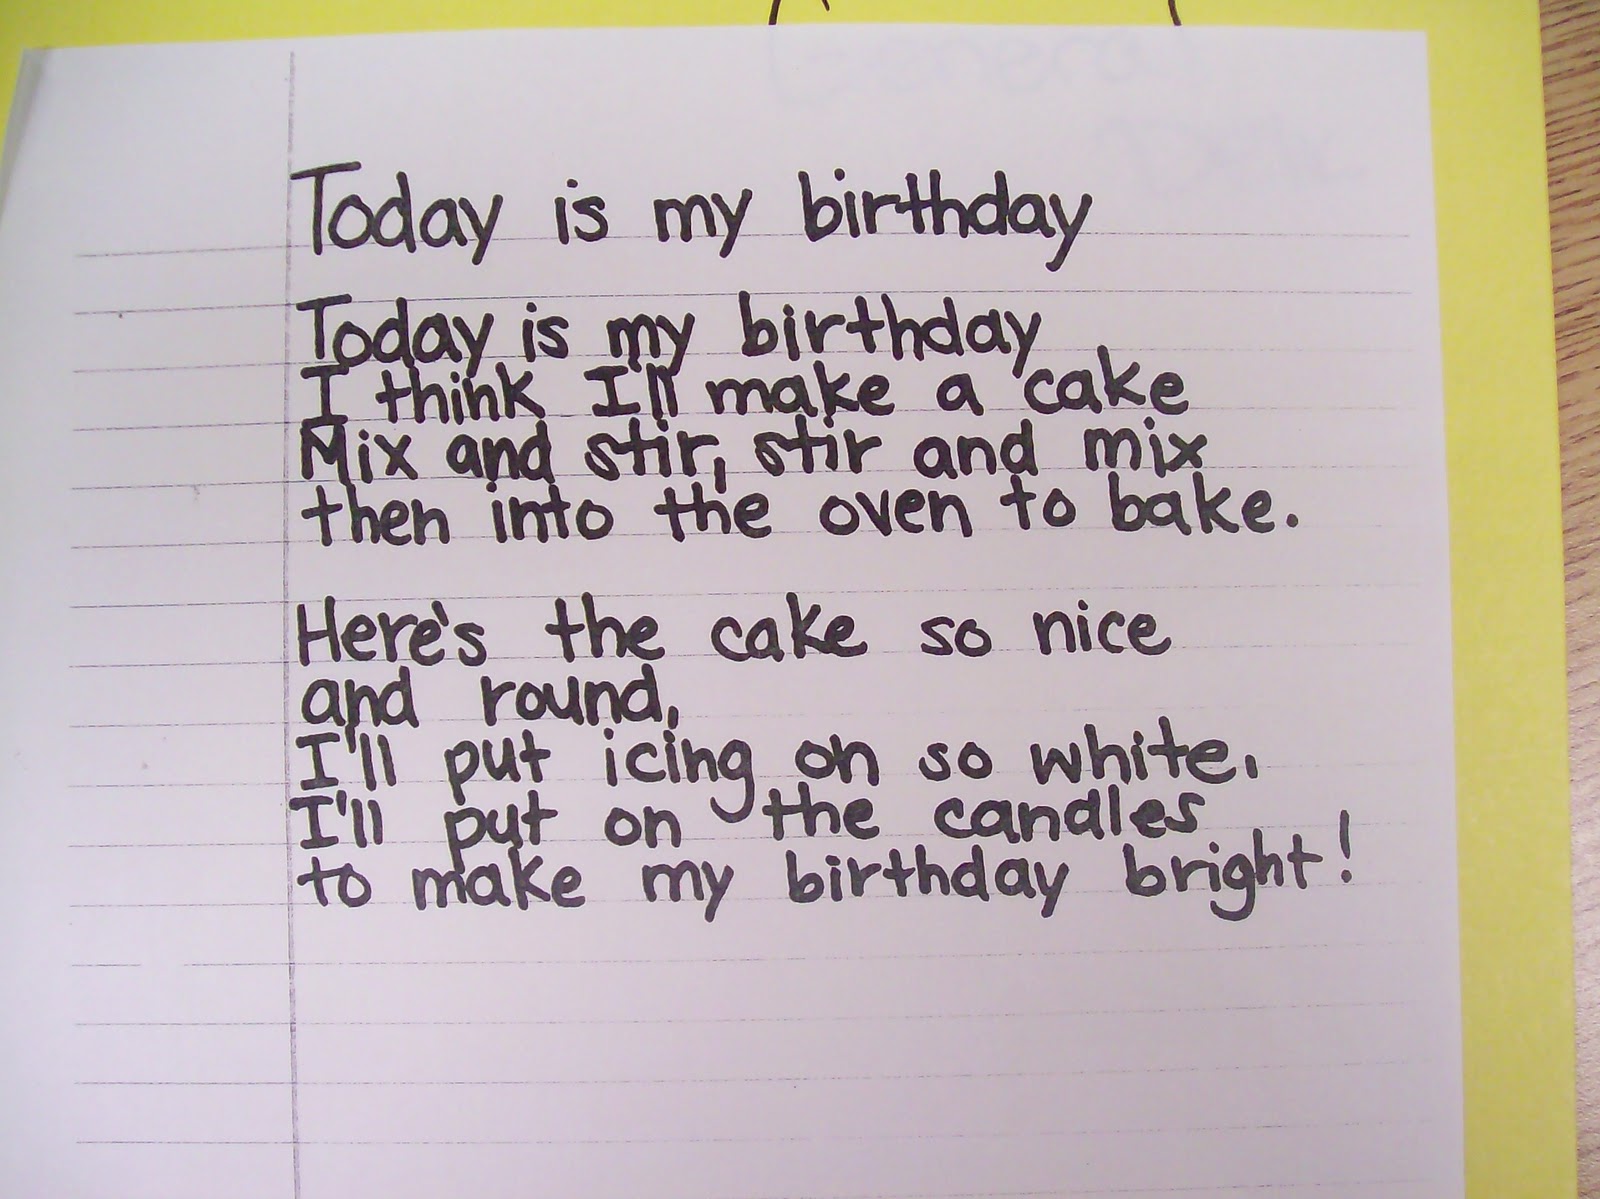 Today is my birthday
Today is my birthday
I think I'll make a cake
Mix and stir, stir and mix
then into the oven to bake.
Here's the cake so nice
and round,
I'll put icing on so white,
I'll put on the candles
to make my birthday bright!